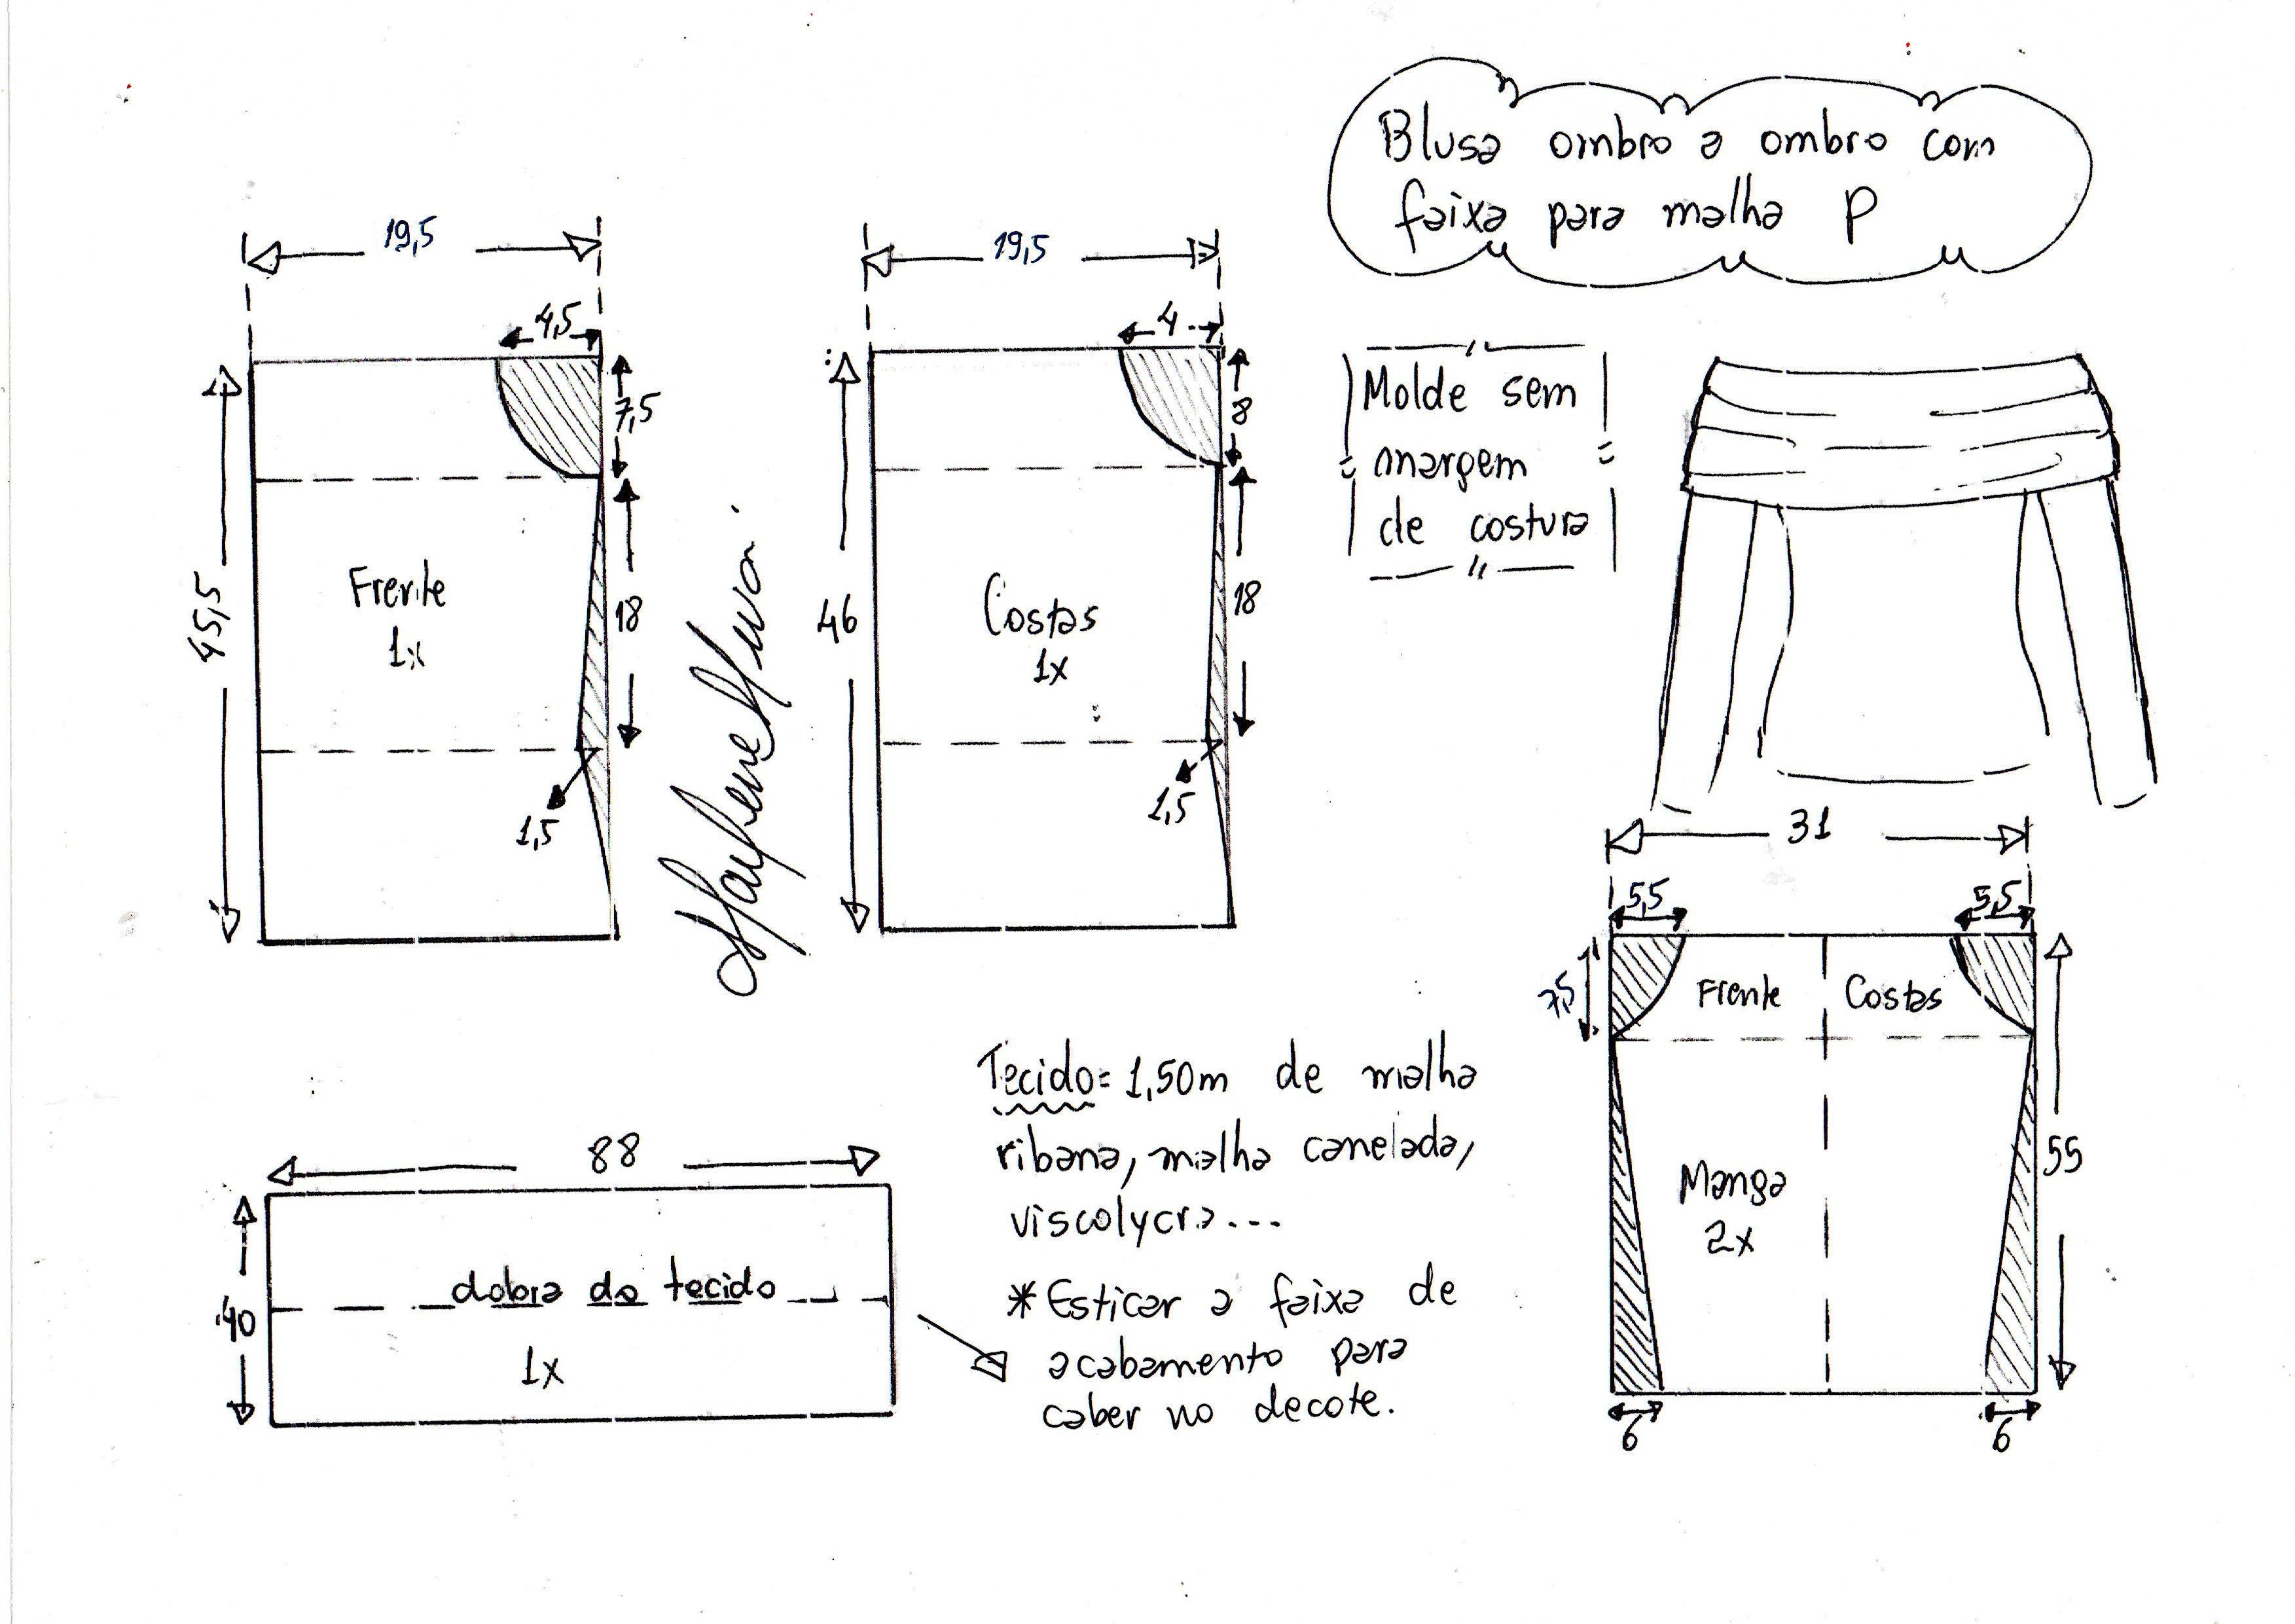 Blusa ombro a ombro com
faixa para malha P
19,5
4,5
7,5
45,5
Frente
1x
18
1,5
19,5
4
8
46
Costas
1x
18
1,5
Molde sem
margem
de costura
31
5,5
5,5
7,5
Frente
Costas
Manga
2x
55
6
6
88
40
dobra do tecido
1x
Tecido= 1,50m de malha
ribana, malha canelada,
viscolycra...
*Esticar a faixa de
acabamento para
caber no decote.